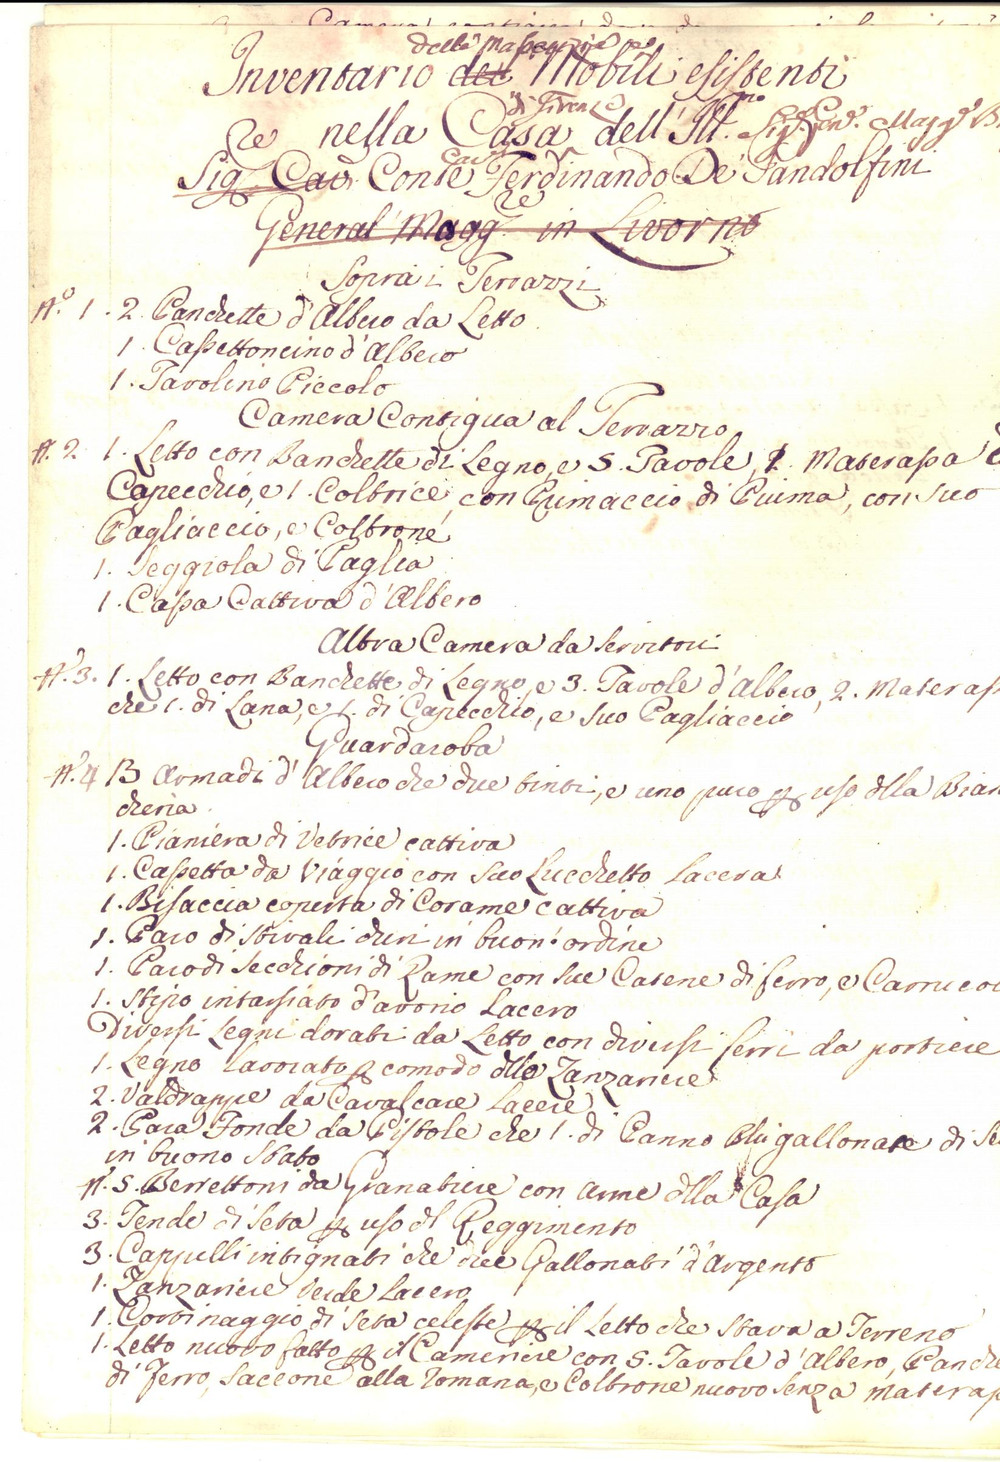 delle Masserizie
Inventario dei Mobili esistenti
di Firenze
nella Casa dell'Ill.mo Sig.re Gen.e Magg.e
Sig.re Cav. Conte Cav.e Ferdinando De' Pandolfini
General Magg.re in Livorno
Sopra i Terrazzi
N.o 1. 2. Panchette d'Albero da Letto
1. Cassettoncino d'Albero
1. Tavolino Piccolo
Camera Contigua al Terrazzo
N. 2 1. Letto con Banchette di Legno, e 5. Tavole, 1. Materassa
Capecchio, e 1. Coltrice, con Piumaccio di Piuma, con suo
Pagliaccio, e Coltrone
1. Seggiola di Paglia
1. Cassa Cattiva d'Albero
Altra Camera da Servitori
N. 3. 1. Letto con Banchette di Legno, e 3. Tavole d'Albero, 2. Materas
che 1. di Lana, e 1. di Capecchio, e suo Pagliaccio
Guardaroba
N. 4 13 Armadi d'Albero che due tinti, e uno puro p uso dlla Bian
cheria
1. Pianiera di Vetrice cattiva
1. Cassetta da Viaggio con suo Lucchetto Lacera
1. Bisaccia coperta di Corame cattiva
1. Paro di Stivali duri in buon'ordine
1. Paro di Secchioni di Rame con sue Catene di ferro, e Carruco
1. Stipo intarsiato d'avorio Lacero
Diversi Legni dorati da Letto con diversi ferri da portiere
1. Legno lavorato p comodo dlle Zanzariere
2. Valdrappe da Cavalcare Lacere
2. Para Fonde da Pistole che 1. di Panno Blù gallonate di Se
in buono Stato
N. 5. Berrettoni da Granatiere con arme dlla Casa
3. Tende di Seta p uso dl Reggimento
3. Cappelli intignati che due Gallonati d'Argento
1. Zanzariere verde Lacero
1. Cortinaggio di Seta celeste p il Letto che stava a Terreno
1. Letto nuovo fatto p il Cameriere con 5. Tavole d'Albero, Panche
di Ferro, Saccone alla romana, e Coltrone nuovo senza materas